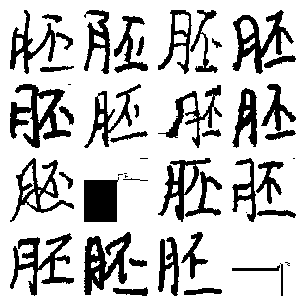 胚胚胚胚
胚胚胚胚
胚胚胚
胚胚胚